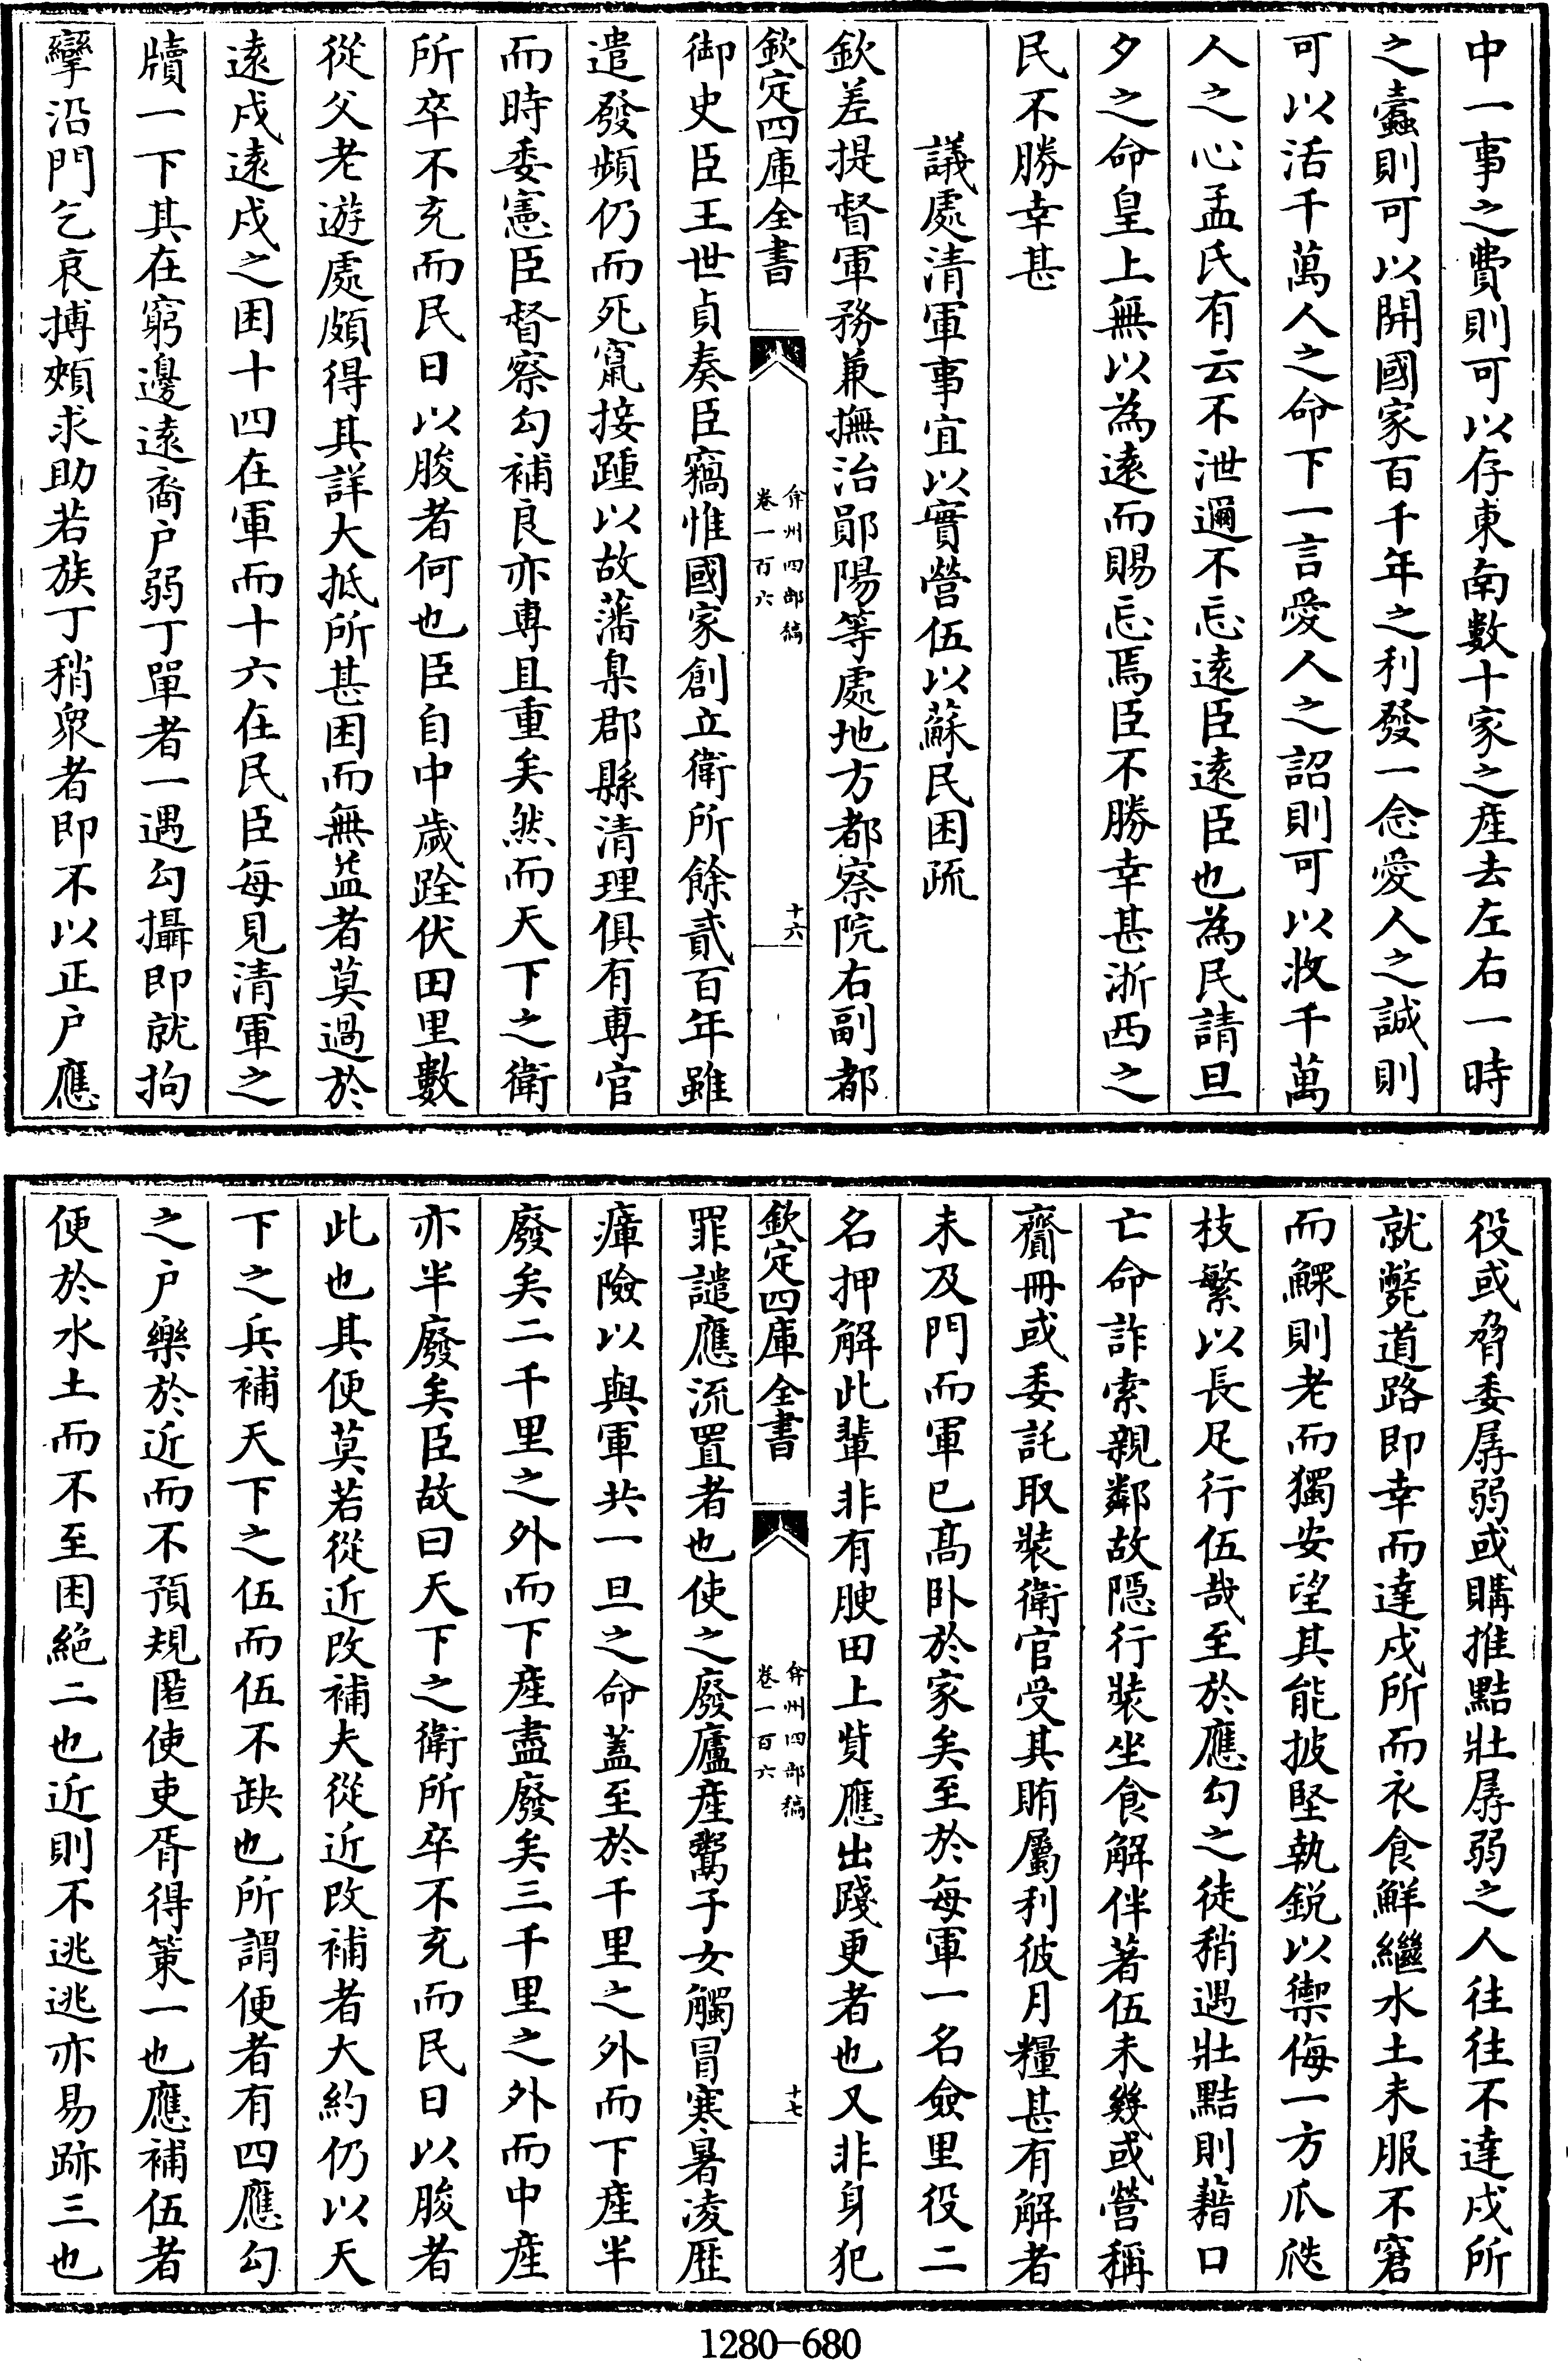 中一事之費則可以存東南數十家之産去左右一時
之蠧則可以開國家百千年之利發一念愛人之誠則
可以活千萬人之命下一言愛人之詔則可以收千萬
人之心孟氏有云不泄邇不忘逺臣逺臣也為民請旦
夕之命皇上無以為逺而賜忘焉臣不勝幸甚浙西之
民不勝幸甚
議處清軍事宜以實營伍以蘇民困疏
欽差提督軍務兼撫治鄖陽等處地方都察院右副都
欽定四庫全書
弇州四部稿
卷一百六
十六
御史臣王世貞奏臣竊惟國家創立衛所餘貳百年雖
遣發頻仍而死竄接踵以故藩臬郡縣清理俱有專官
而時委憲臣督察勾補良亦專且重矣然而天下之衛
所卒不充而民日以朘者何也臣自中歲跧伏田里數
從父老遊處頗得其詳大抵所甚困而無益者莫過於
逺戍逺戍之困十四在軍而十六在民臣每見清軍之
牘一下其在窮邊逺裔户弱丁單者一遇勾攝即就拘
攣沿門乞哀搏頰求助若族丁稍衆者即不以正户應
役或脅委孱弱或購推點壯孱弱之人往往不達戍所
就斃道路即幸而達戍所而衣食鮮繼水土未服不窘
而鰥則老而獨安望其能披堅執鋭以禦侮一方瓜瓞
枝繁以長足行伍哉至於應勾之徒稍遇壯黠則藉口
亡命詐索親鄰故隠行裝坐食解伴著伍未幾或營稱
齎冊或委託取裝衛官受其賄屬利彼月糧甚有解者
未及門而軍已髙卧於家矣至於每軍一名僉里役二
名押解此輩非有腴田上貲應出踐更者也又非身犯
欽定四庫全書
弇州四部稿
卷一百六
十七
罪譴應流置者也使之廢廬産鬻子女觸冒寒暑凌歴
瘴險以與軍共一旦之命蓋至於千里之外而下産半
廢矣二千里之外而下産盡廢矣三千里之外而中産
亦半廢矣臣故曰天下之衛所卒不充而民日以朘者
此也其便莫若從近改補夫從近改補者大約仍以天
下之兵補天下之伍而伍不缺也所謂便者有四應勾
之户樂於近而不預規匿使吏胥得䇿一也應補伍者
便於水土而不至困絶二也近則不逃逃亦易跡三也
1280-680